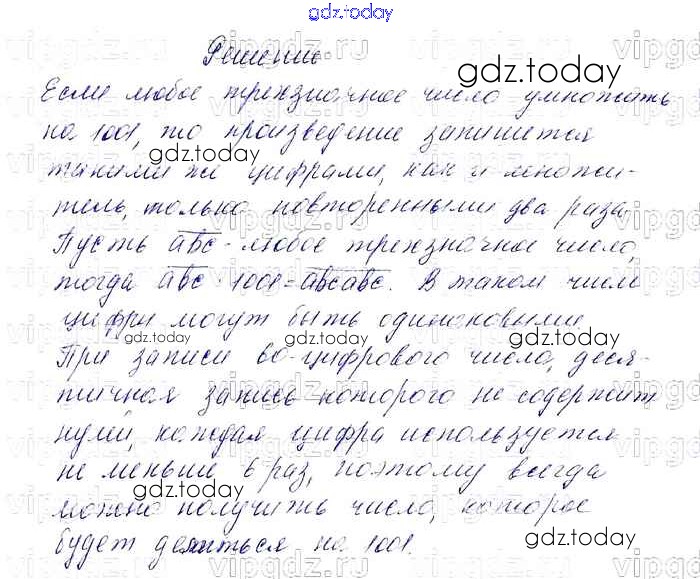 gdz.today
Решение
gdz.today
Если любое трехзначное число умножить
на 1001, то произведение запишется
gdz.today
такими же цифрами, как и множи-
тель, только повторенными два раза.
Пусть abc - любое трехзначное число,
тогда abc · 1001 = abcabc. В таком числе
цифры могут быть одинаковыми.
gdz.today
gdz.today
При записи 60-цифрового числа, деся-
тичная запись которого не содержит
gdz.today
нулей, каждая цифра используется
не меньше 6 раз, поэтому всегда
gdz.today
можно получить число, которое
будет делиться на 1001.
gdz.today
vipgdz.ru